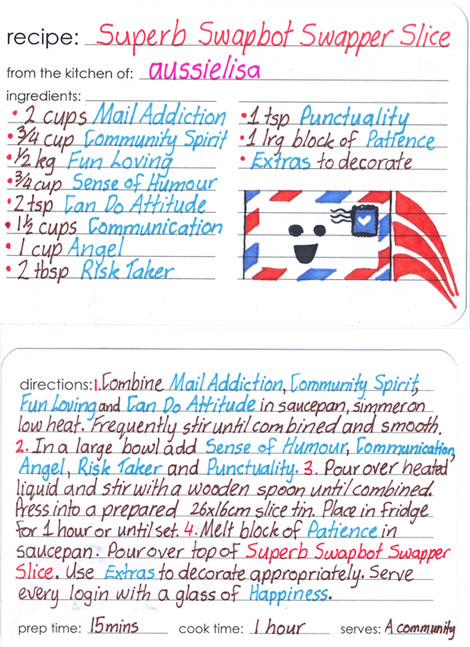 recipe: Superb Swapbot Swapper Slice
from the kitchen of: aussielisa
ingredients:
• 2 cups Mail Addiction
• 3/4 cup Community Spirit
• 1/2 kg Fun Loving
• 3/4 cup Sense of Humour
• 2 tsp Can Do Attitude
• 1 1/2 cups Communication
• 1 cup Angel
• 2 tbsp Risk Taker
• 1 tsp Punctuality
• 1 lrg block of Patience
• Extras to decorate
directions: 1. Combine Mail Addiction, Community Spirit,
Fun Loving and Can Do Attitude in saucepan, simmer on
low heat. Frequently stir until combined and smooth.
2. In a large bowl add Sense of Humour, Communication,
Angel, Risk Taker and Punctuality. 3. Pour over heated
liquid and stir with a wooden spoon until combined.
Press into a prepared 26x16cm slice tin. Place in fridge
for 1 hour or until set. 4. Melt block of Patience in
saucepan. Pour over top of Superb Swapbot Swapper
Slice. Use Extras to decorate appropriately. Serve
every login with a glass of Happiness.
prep time: 15mins cook time: 1 hour serves: A community